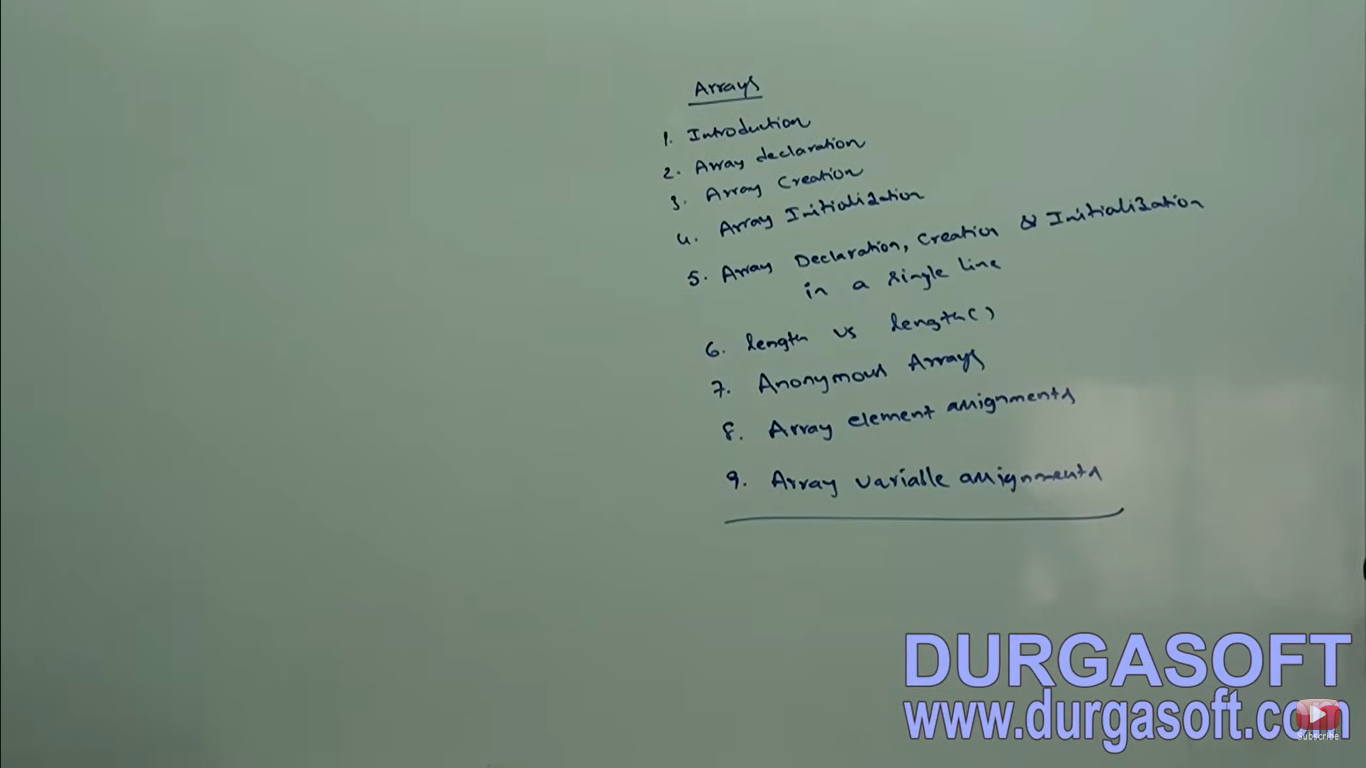 Arrays
1. Introduction
2. Array declaration
3. Array Creation
4. Array Initialization
5. Array Declaration, Creation & Initialization
in a single line
6. length vs length()
7. Anonymous Arrays
8. Array element assignments
9. Array variable assignments
DURGASOFT
www.durgasoft.com
Subscribe